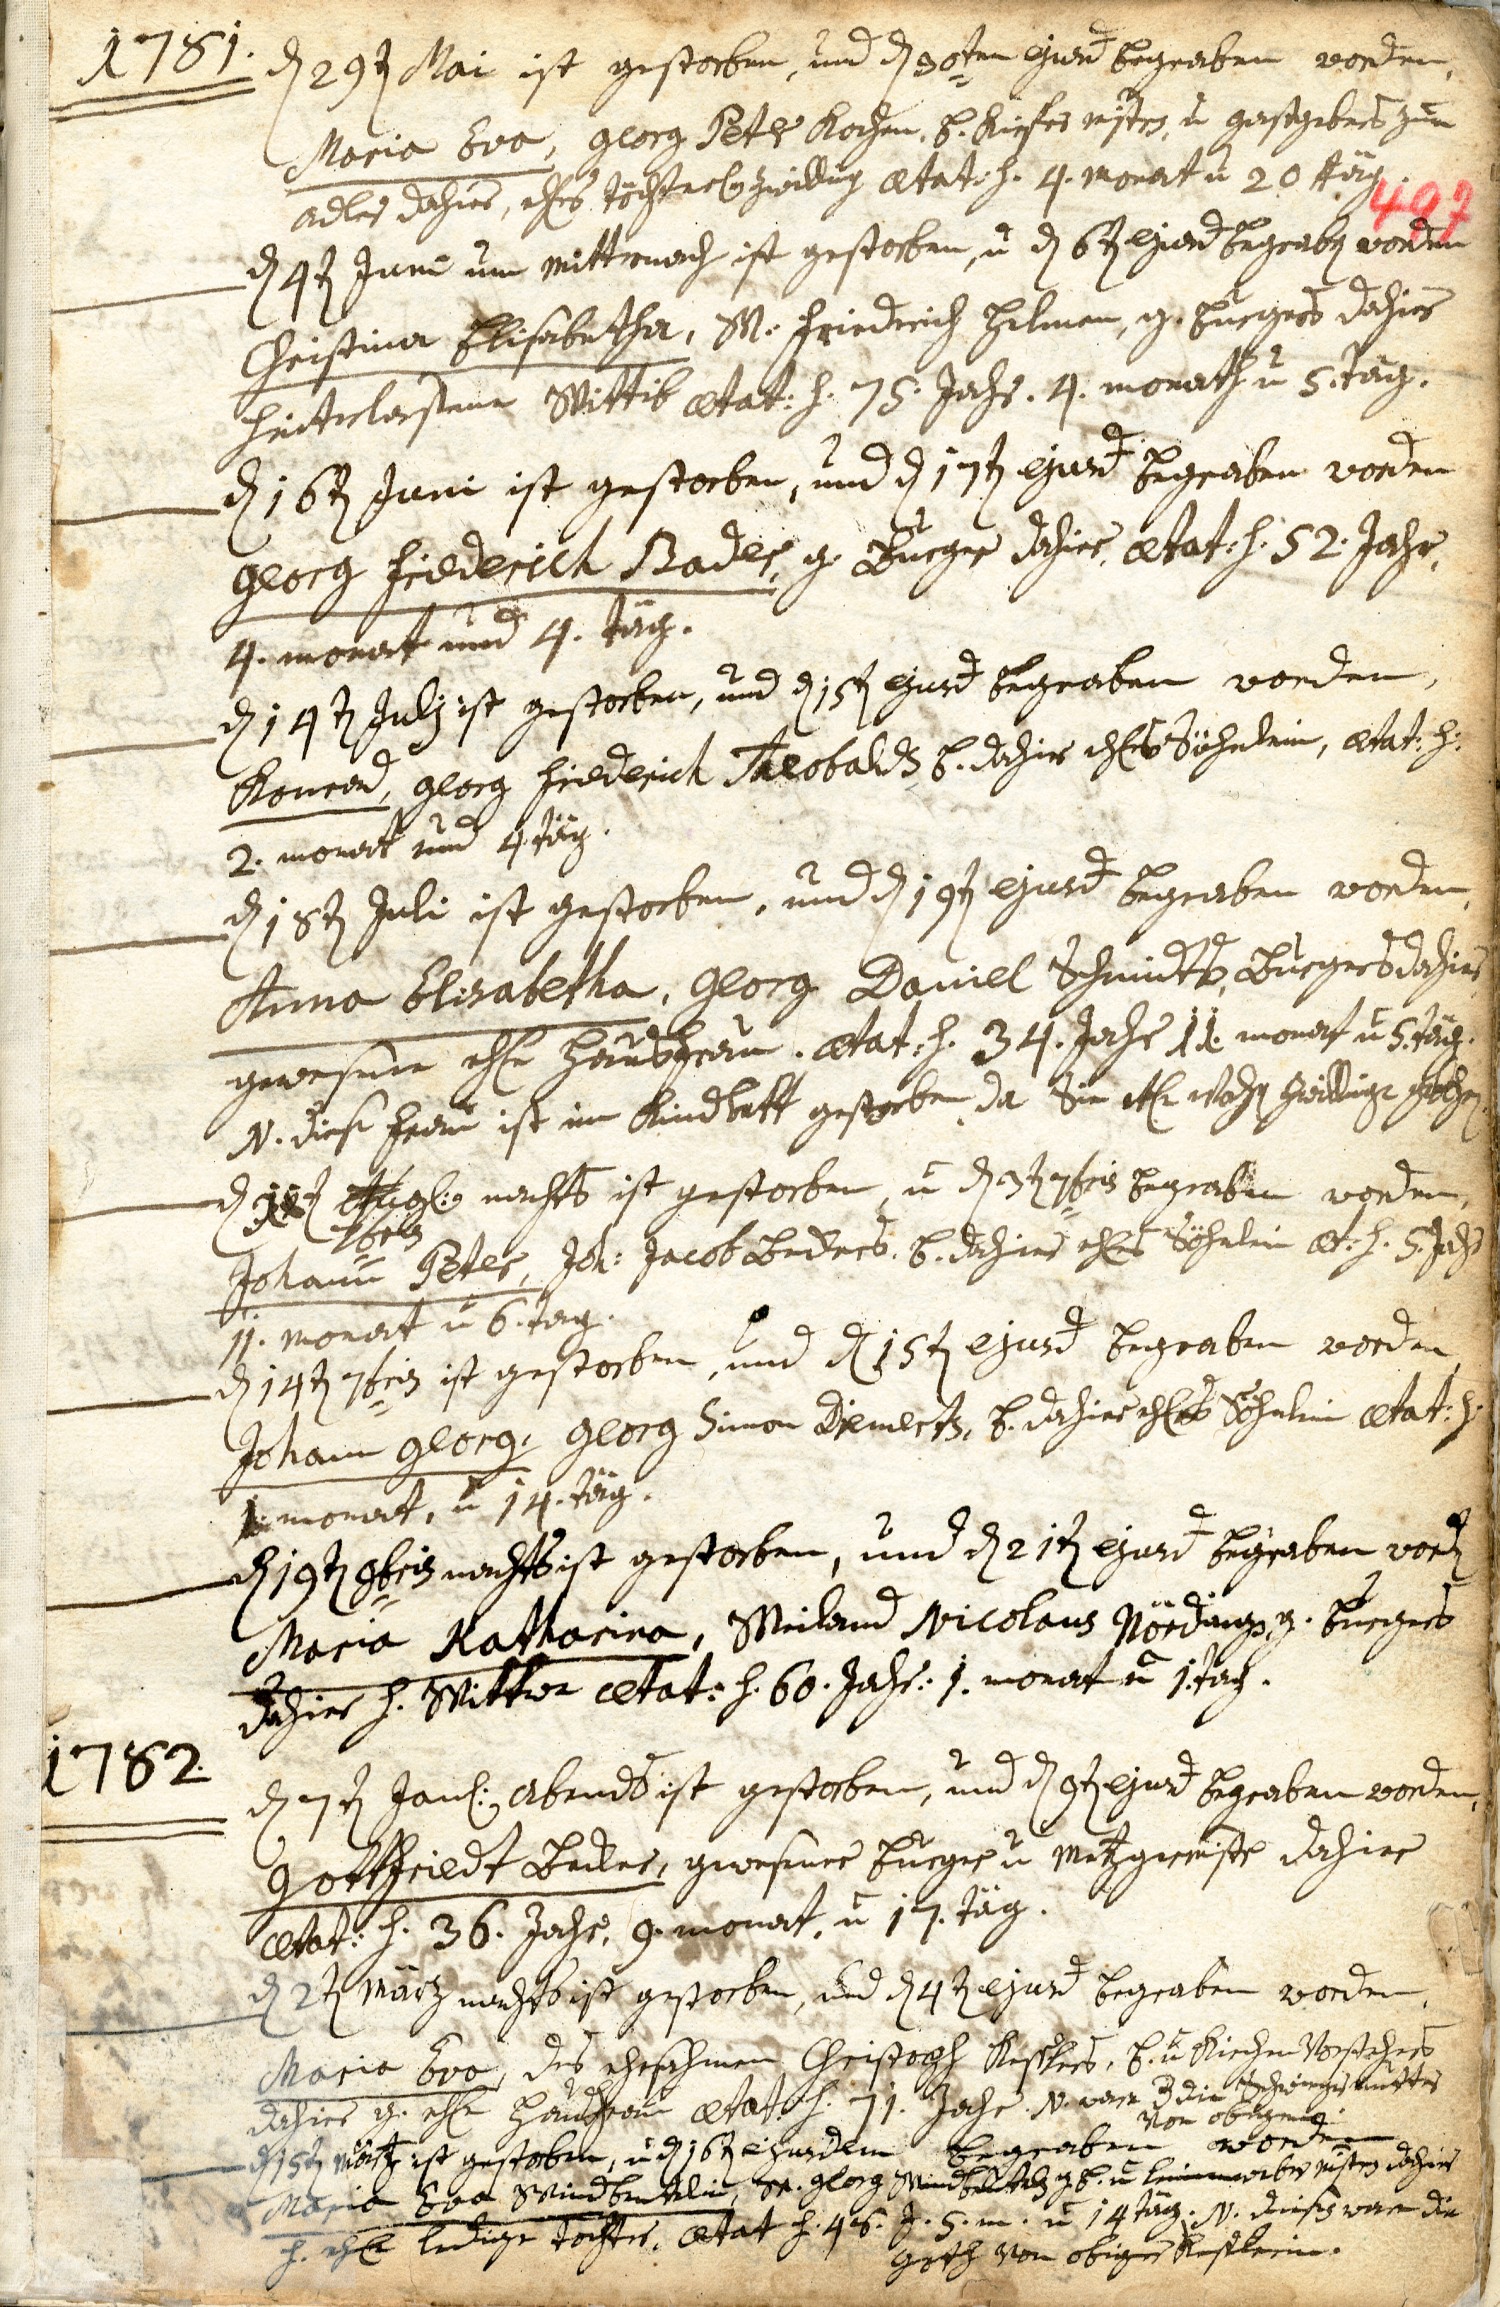 1781. d 29t Mai ist gestorben, und d 30ten ejusd begraben worden,
Maria Eva, Georg Peter Kochen, b. Kiefer mstrs, u gastgebers zum
adler dahier, ehl töchterl zwilling ætat: h. 4. monat u 20 täg.
497
d 4t Juni um mitternach ist gestorben, u d 6t ejusd begrab worden
Christina Elisabetha, M. Friedrich Helmen, g. burgers dahier
hinterlassene Wittib ætat: h. 75. Jahr. 4. monath u 5. täg.
d 16t Juni ist gestorben, und d 17t ejusd begraben worden
Georg Friederich Bader, g. Burger dahier, ætat: h. 52. Jahr,
4. monat und 4. täg.
d 14t July ist gestorben, und d 15t ejusd begraben worden,
Konrad, Georg Friederich Theobalds, b. dahier ehl Söhnlein, ætat: h:
2. monat und 4 täg.
d 18t Juli ist gestorben, und d 19t ejusd begraben worden,
Anna Elisabetha, Georg Daniel Schmidts, Burgers dahier
gewesene ehl Haußfrau. ætat: h. 34. Jahr 11. monat u 5. täg.
N. diese frau ist im Kindbett gestorben, da Sie zwillinge
d 1t nachts ist gestorben, u d 3t 7bris begraben worden,
7bris
Johann Peter, Joh: Jacob Beckers. b. dahier ehl Söhnlein æt: h. 5. Jahr
11. monat u 6. tag.
d 14t 7bris ist gestorben, und d 15t ejusd begraben worden,
Johann Georg, Georg Simon Diemertz, b. dahier ehl Söhnlein ætat: h:
1. monat, u 14. täg.
d 19t 9bris nachts ist gestorben, und d 21t ejusd begraben word
Maria Katharina, Weiland Nicolaus Nördings, g. burgers
dahier h. Wittwe ætat: h. 60. Jahr: 1. monat u 1. tag.
1782. d 7t Jan: Abends ist gestorben, und d 9t ejusd begraben worden,
Gottfriedt Becker, gewesener burger u Metzgermstr dahier
ætat: h. 36. Jahr, 9. monat, u 17. täg.
d 2t März nachts ist gestorben, und d 4t ejusd begraben worden,
Maria Eva, des ehrsahmen Christoph Keßlers, b. u Kirchen Vorstehers
dahier g. ehl Haußfrau ætat: h. 71. Jahr. N. war die Schwiegermutter
von obigem.
d 15t Märtz ist gestorben, u d 16t ejusdem begraben worden
Maria Eva Windbeutelin, Georg Windbeutels g. b. u leinenweber mstrs dahier
h. ehl ledige tochter, ætat h. 46. J. 5. m. u 14 täg. N. diese war die
Goth von obiger Keßlerin.